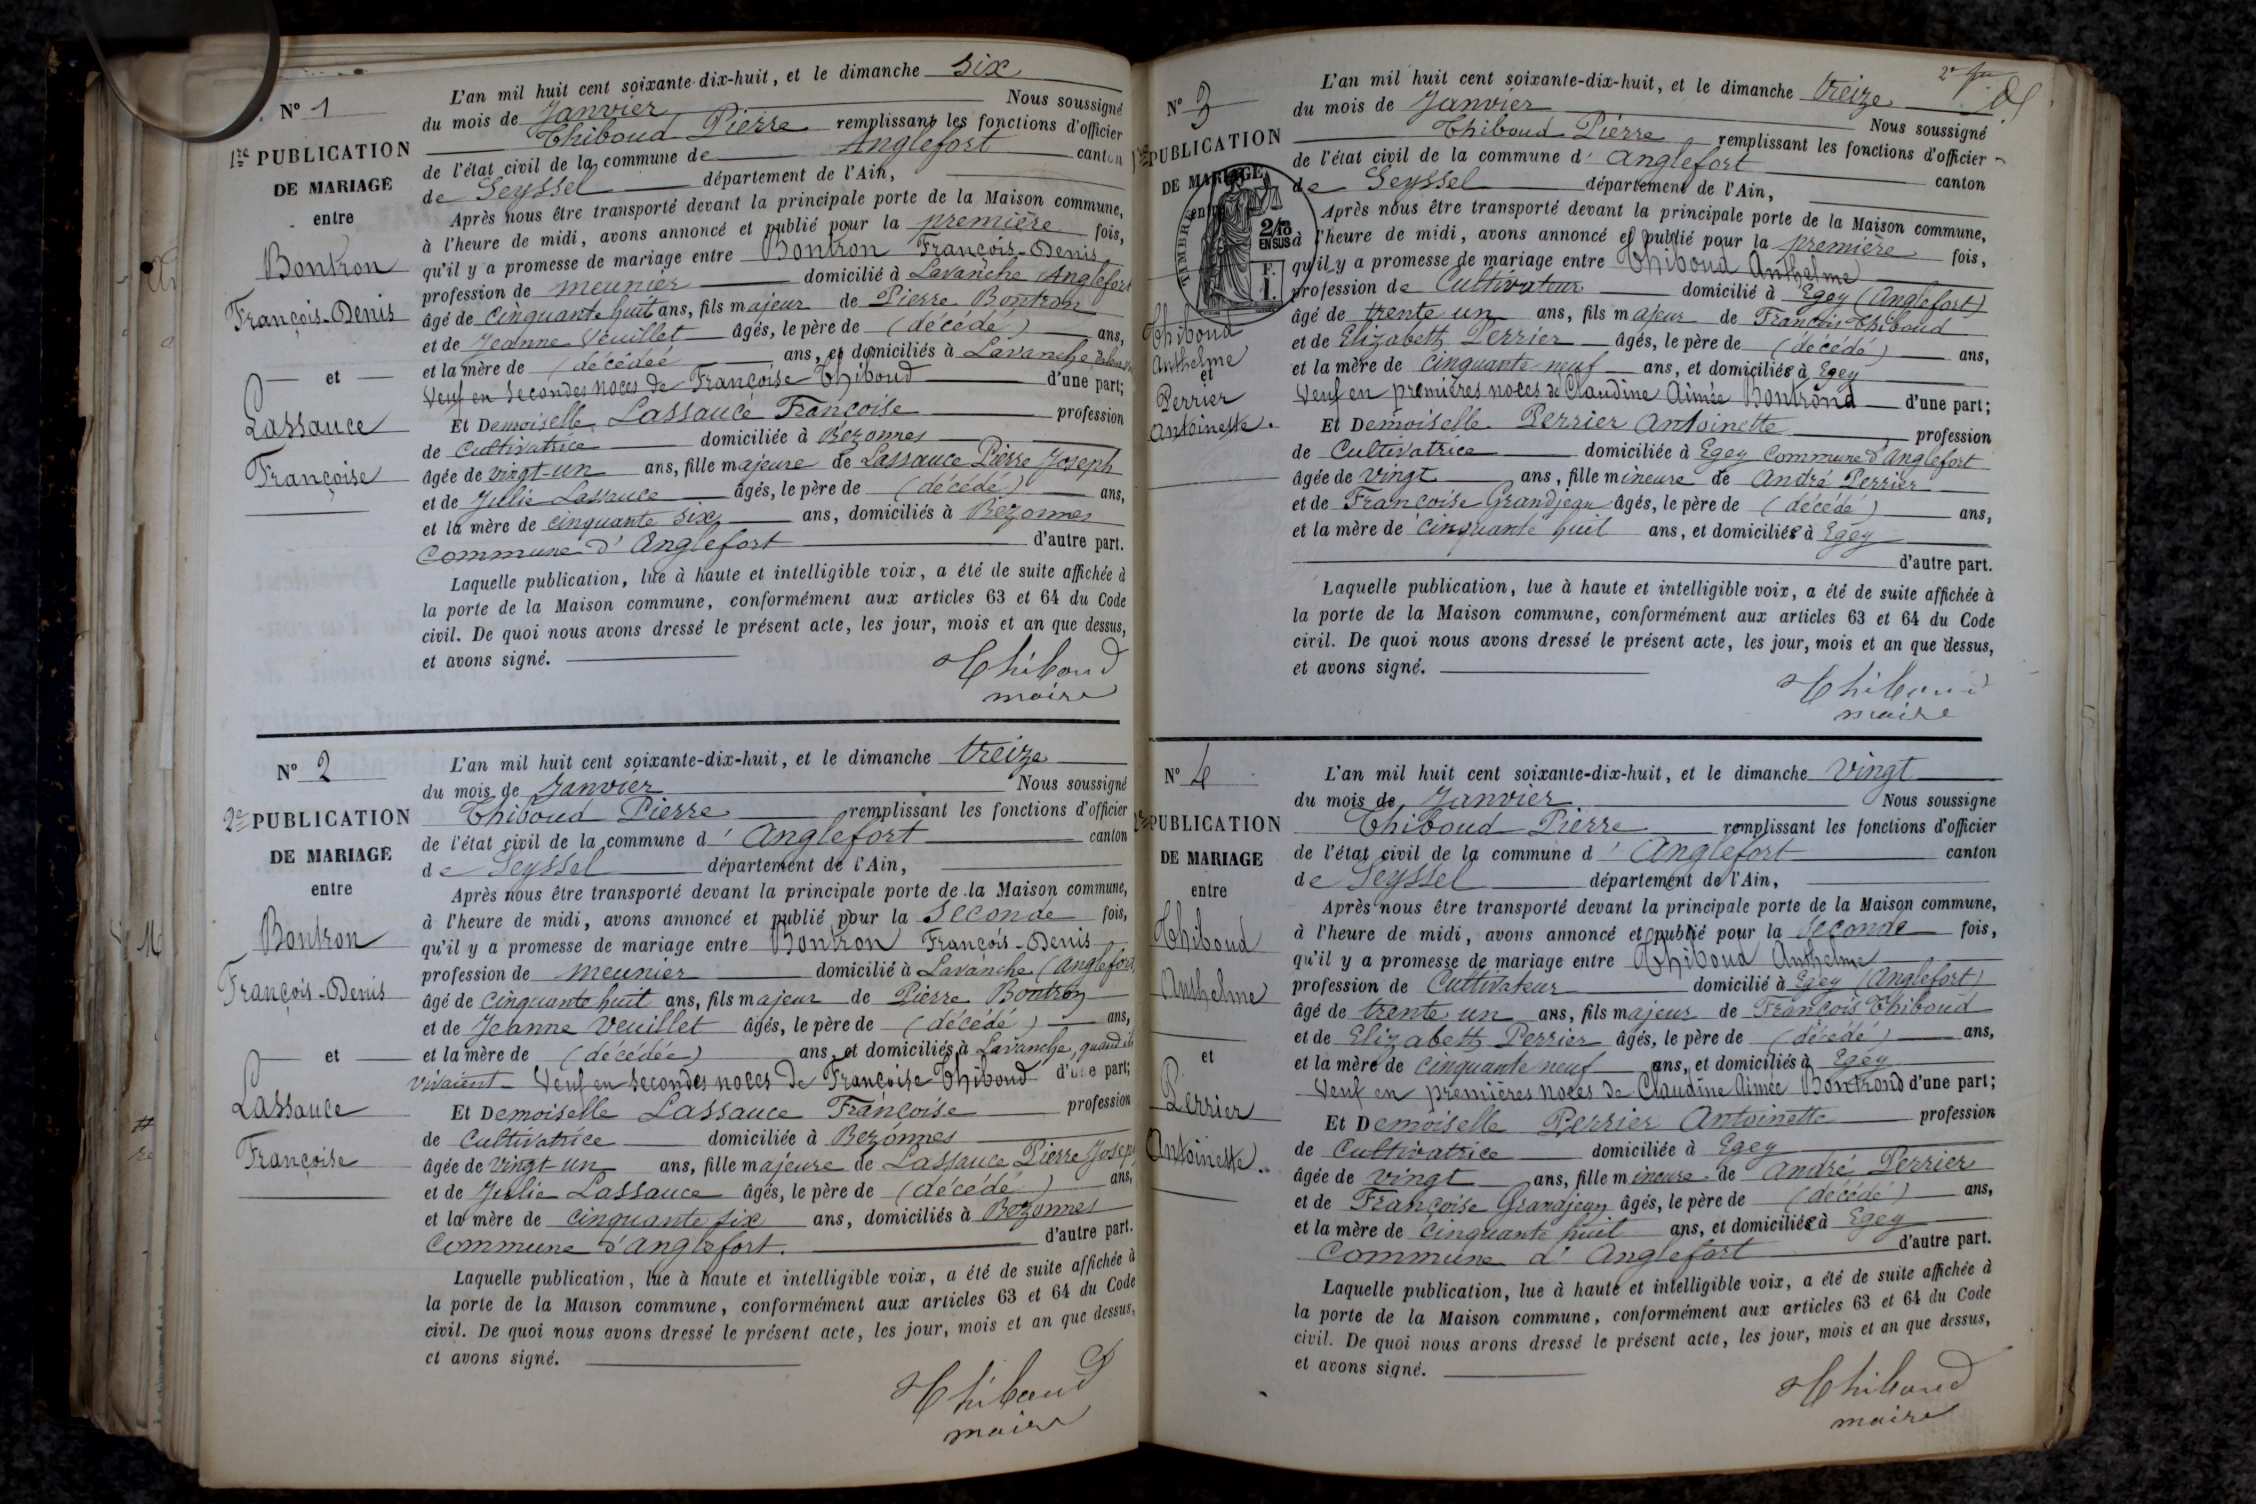 N° 1
1re PUBLICATION
DE MARIAGE
entre
Bontron
François-Denis
et
Lassauce
Françoise
L'an mil huit cent soixante-dix-huit, et le dimanche six
du mois de Janvier Nous soussigné
Thiboud Pierre remplissant les fonctions d'officier
de l'état civil de la commune de Anglefort canton
de Seyssel département de l'Ain,
Après nous être transporté devant la principale porte de la Maison commune,
à l'heure de midi, avons annoncé et publié pour la première fois,
qu'il y a promesse de mariage entre Bontron François-Denis
profession de meunier domicilié à Lavanche (Anglefort
âgé de cinquante huit ans, fils majeur de Pierre Bontron
et de Jeanne Veuillet âgés, le père de (décédé) ans,
et la mère de (décédée ans, et domiciliés à Lavanche
Veuf en secondes noces de Françoise Thiboud d'une part;
Et Demoiselle Lassauce Françoise profession
de Cultivatrice domiciliée à Bezonnes
âgée de vingt-un ans, fille majeure de Lassauce Pierre Joseph
et de Julie Lassauce âgés, le père de (décédé) ans,
et la mère de cinquante six ans, domiciliés à Bezonnes
Commune d'Anglefort d'autre part.
Laquelle publication, lue à haute et intelligible voix, a été de suite affichée à
la porte de la Maison commune, conformément aux articles 63 et 64 du Code
civil. De quoi nous avons dressé le présent acte, les jour, mois et an que dessus,
et avons signé.
Thiboud
maire
N° 2
2e PUBLICATION
DE MARIAGE
entre
Bontron
François-Denis
et
Lassauce
Françoise
L'an mil huit cent soixante-dix-huit, et le dimanche treize
du mois de Janvier Nous soussigné
Thiboud Pierre remplissant les fonctions d'officier
de l'état civil de la commune d'Anglefort canton
de Seyssel département de l'Ain,
Après nous être transporté devant la principale porte de la Maison commune,
à l'heure de midi, avons annoncé et publié pour la seconde fois,
qu'il y a promesse de mariage entre Bontron François-Denis
profession de meunier domicilié à Lavanche (Anglefort
âgé de cinquante huit ans, fils majeur de Pierre Bontron
et de Jeanne Veuillet âgés, le père de (décédé) ans,
et la mère de (décédée) ans, et domiciliés à Lavanche, quand ils
vivaient Veuf en secondes noces de Françoise Thiboud d'une part;
Et Demoiselle Lassauce Françoise profession
de Cultivatrice domiciliée à Bezonnes
âgée de vingt-un ans, fille majeure de Lassauce Pierre Joseph
et de Julie Lassauce âgés, le père de (décédé) ans,
et la mère de cinquante six ans, domiciliés à Bezonnes
Commune d'Anglefort. d'autre part.
Laquelle publication, lue à haute et intelligible voix, a été de suite affichée à
la porte de la Maison commune, conformément aux articles 63 et 64 du Code
civil. De quoi nous avons dressé le présent acte, les jour, mois et an que dessus,
et avons signé.
Thiboud
maire
N° 3
PUBLICATION
DE MARIAGE
TIMBRE
2/10
EN SUS
F.
1.
Thiboud
Anthelme
et
Perrier
Antoinette.
L'an mil huit cent soixante-dix-huit, et le dimanche treize
du mois de Janvier Nous soussigné
Thiboud Pierre remplissant les fonctions d'officier
de l'état civil de la commune d'Anglefort canton
de Seyssel département de l'Ain,
Après nous être transporté devant la principale porte de la Maison commune,
à l'heure de midi, avons annoncé et publié pour la première fois,
qu'il y a promesse de mariage entre Thiboud Anthelme
profession de Cultivateur domicilié à Egey (Anglefort)
âgé de trente un ans, fils majeur de François Thiboud
et de Elizabeth Perrier âgés, le père de (décédé) ans,
et la mère de cinquante-neuf ans, et domiciliés à Egey
Veuf en premières noces de Claudine Aimée Bontrond d'une part;
Et Demoiselle Perrier Antoinette profession
de Cultivatrice domiciliée à Egey Commune d'Anglefort
âgée de vingt ans, fille mineure de André Perrier
et de Françoise Grandjean âgés, le père de (décédé) ans,
et la mère de cinquante huit ans, et domiciliés à Egey
d'autre part.
Laquelle publication, lue à haute et intelligible voix, a été de suite affichée à
la porte de la Maison commune, conformément aux articles 63 et 64 du Code
civil. De quoi nous avons dressé le présent acte, les jour, mois et an que dessus,
et avons signé.
Thiboud
maire
N° 4
PUBLICATION
DE MARIAGE
entre
Thiboud
Anthelme
et
Perrier
Antoinette..
L'an mil huit cent soixante-dix-huit, et le dimanche vingt
du mois de Janvier Nous soussigné
Thiboud Pierre remplissant les fonctions d'officier
de l'état civil de la commune d'Anglefort canton
de Seyssel département de l'Ain,
Après nous être transporté devant la principale porte de la Maison commune,
à l'heure de midi, avons annoncé et publié pour la seconde fois,
qu'il y a promesse de mariage entre Thiboud Anthelme
profession de Cultivateur domicilié à Egey (Anglefort)
âgé de trente un ans, fils majeur de François Thiboud
et de Elizabeth Perrier âgés, le père de (décédé) ans,
et la mère de cinquante neuf ans, et domiciliés à Egey
Veuf en premières noces de Claudine Aimée Bontrond d'une part;
Et Demoiselle Perrier Antoinette profession
de Cultivatrice domiciliée à Egey
âgée de vingt ans, fille mineure de André Perrier
et de Françoise Grandjean âgés, le père de (décédé) ans,
et la mère de cinquante huit ans, et domiciliés à Egey
Commune d'Anglefort d'autre part.
Laquelle publication, lue à haute et intelligible voix, a été de suite affichée à
la porte de la Maison commune, conformément aux articles 63 et 64 du Code
civil. De quoi nous avons dressé le présent acte, les jour, mois et an que dessus,
et avons signé.
Thiboud
maire